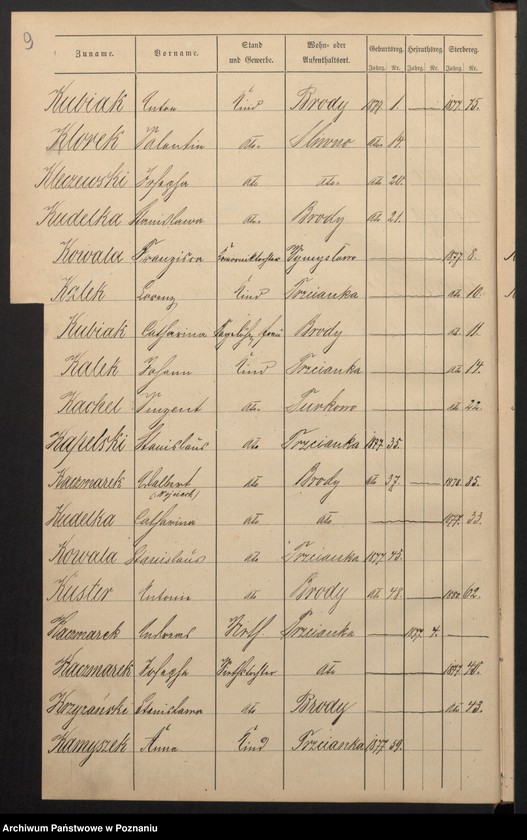 9
Zuname. Vorname. Stand und Gewerbe. Wohn- oder Aufenthaltsort. Geburtsreg. Heirathsreg. Sterbereg.
Jahrg. Nr. Jahrg. Nr. Jahrg. Nr.
Kubiak Anton Kind Brody 1877 1. 1877 75.
Klorek Valentin dto. Sliwno dto. 14.
Kleczewski Josepha dto dto. dto 20.
Kudelka Stanislawa dto. Brody dto 21.
Kowala Franziska Wymyslowo 1877 8.
Kalek Lorenz Kind Trzcianka dto 10.
Kubiak Catharina frau Brody 11.
Kalek Johann Kind Trzcianka dto 14.
Kachel Vinzent dto. Turkowo dto 22.
Kapelski Stanislaus dto Trzcianka 1877 35.
Kaczmarek Adalbert dto Brody dto 37. 1878 85.
Kudelka Catharina dto dto 1877 33.
Kowala Stanislaus dto Trzcianka 1877 45.
Kuster Antonie dto Brody dto 48. 62.
Kaczmarek Andreas Wirth Trzcianka 1877 4.
Kaczmarek Josepha Wirthstochter dto 1877 40.
Krzyzańska Stanislawa dto Brody dto 43.
Kamyszek Anna Kind Trzcianka 1877 59.
Archiwum Państwowe w Poznaniu